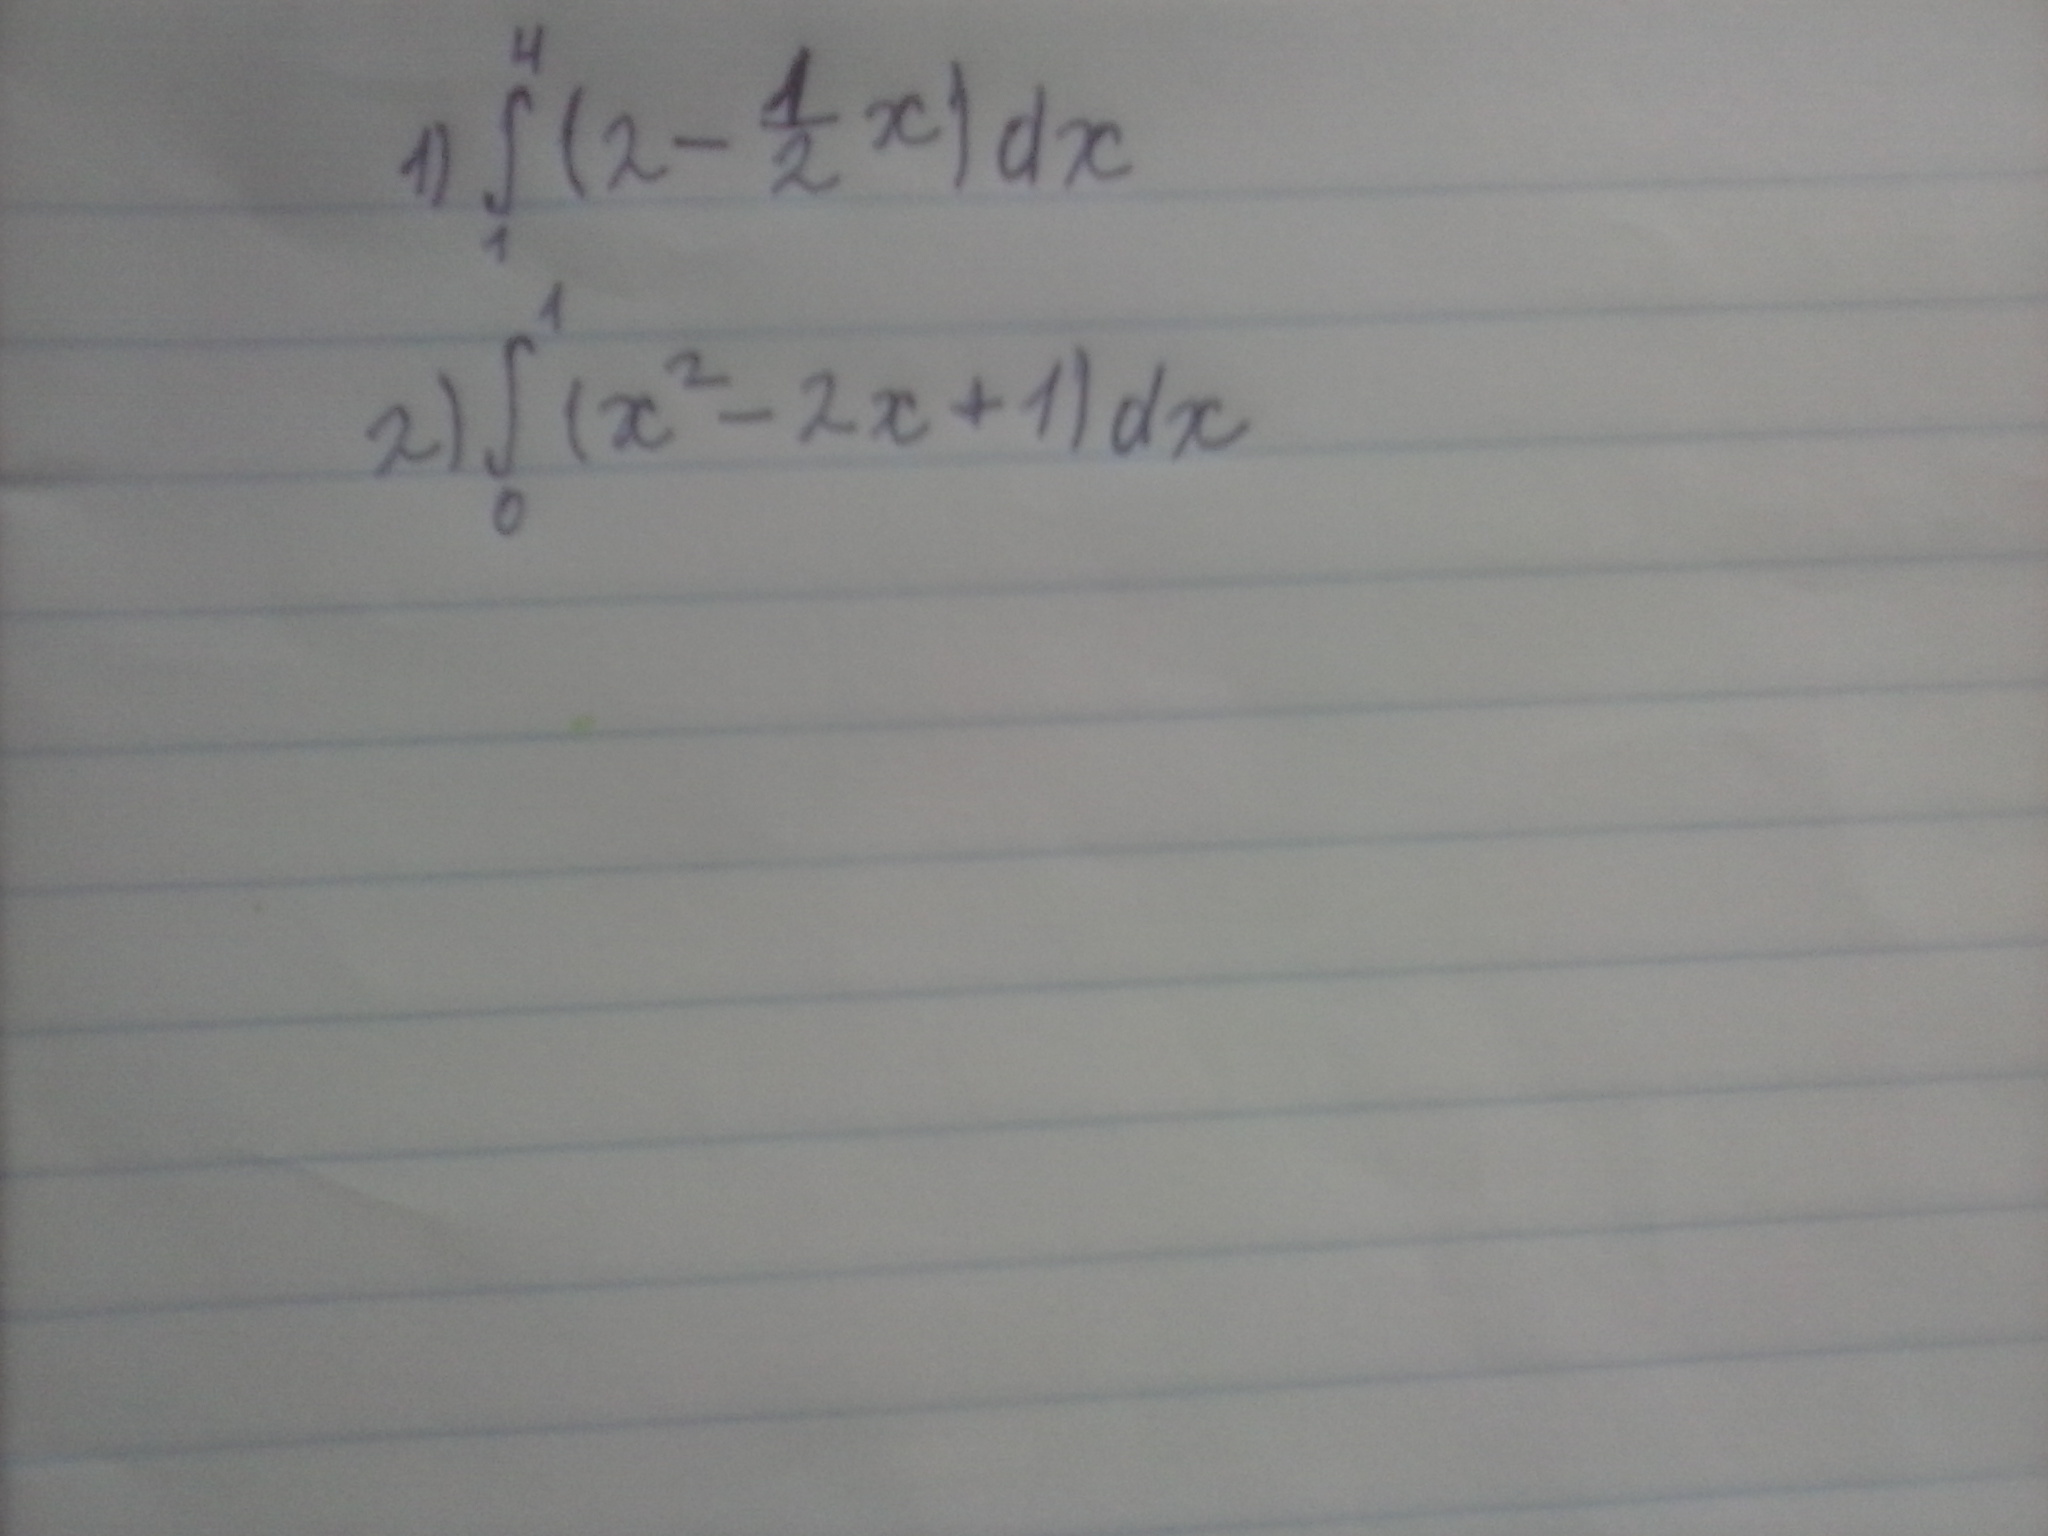 1) ∫₁⁴ (2 - 1/2 x) dx
2) ∫₀¹ (x² - 2x + 1) dx